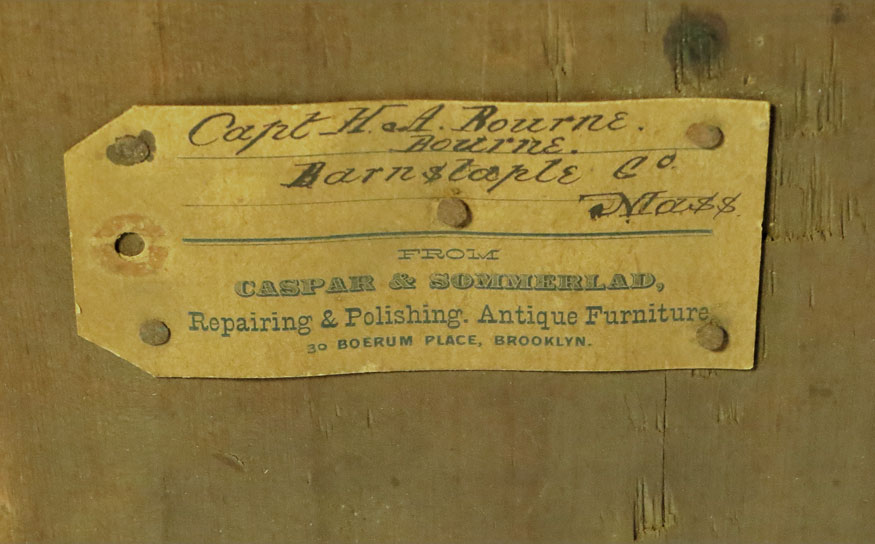 Capt H. A. Bourne.
Bourne.
Barnstaple Co.
Mass.
FROM
CASPAR & SOMMERLAD,
Repairing & Polishing. Antique Furniture
30 BOERUM PLACE, BROOKLYN.